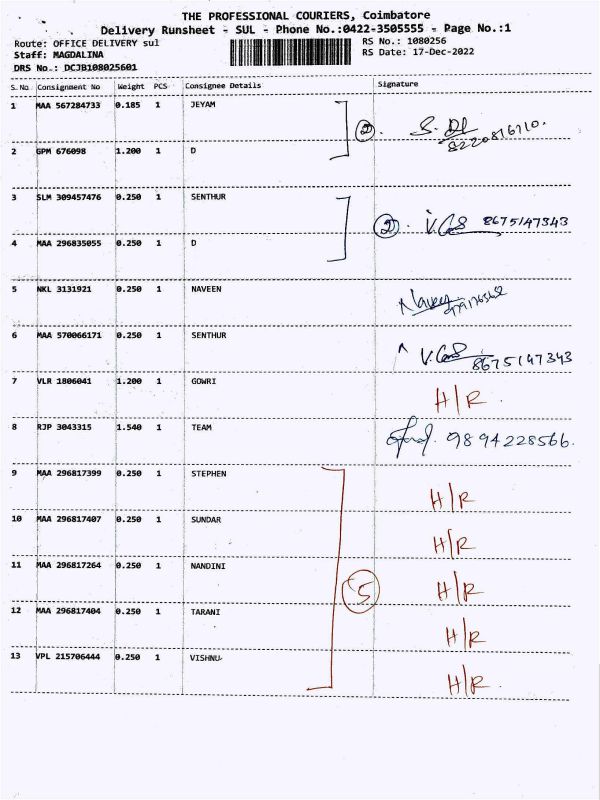 THE PROFESSIONAL COURIERS, Coimbatore
Delivery Runsheet - SUL - Phone No.:0422-3505555 - Page No.:1
Route: OFFICE DELIVERY sul
RS No.: 1080256
Staff: MAGDALINA
RS Date: 17-Dec-2022
DRS No.: DCJB108025601
S.No Consignment No Weight PCS Consignee Details Signature
1 MAA 567284733 0.185 1 JEYAM
② 8220816710.
2 GPM 676098 1.200 1 D
3 SLM 309457476 0.250 1 SENTHUR
② 8675147343
4 MAA 296835055 0.250 1 D
5 NKL 3131921 0.250 1 NAVEEN
Naveen
6 MAA 570066171 0.250 1 SENTHUR
8675147343
7 VLR 1806041 1.200 1 GOWRI H/R
8 RJP 3043315 1.540 1 TEAM 9894228566.
9 MAA 296817399 0.250 1 STEPHEN H/R
10 MAA 296817407 0.250 1 SUNDAR H/R
11 MAA 296817264 0.250 1 NANDINI ⑤ H/R
12 MAA 296817404 0.250 1 TARANI H/R
13 VPL 215706444 0.250 1 VISHNU H/R